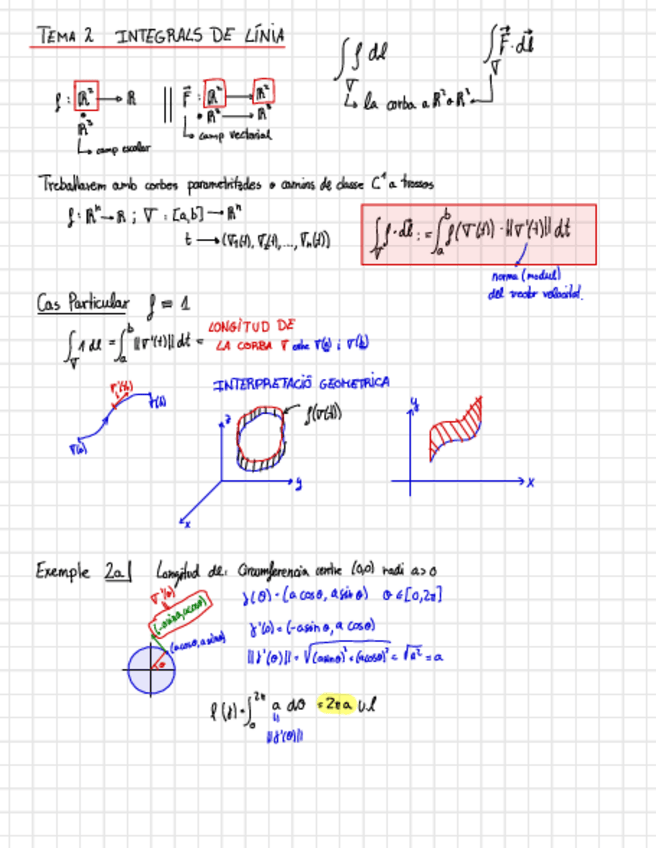 TEMA 2 INTEGRALS DE LÍNIA
∫_∇ f dl
∫_∇ F⃗·dl⃗
↳ la corba a R² o R³
f : R² → R || F⃗ : R² → R²
R³
• R³ → R³
↳ camp escalar
↳ camp vectorial
Treballarem amb corbes parametritzades o camins de classe C¹ a trossos
f: Rⁿ → R ; ∇ : [a,b] → Rⁿ
t → (∇₁(t), ∇₂(t), ..., ∇ₙ(t))
∫_∇ f·dl := ∫_a^b f(∇(t))·||∇'(t)|| dt
norma (modul)
del vector velocitat.
Cas Particular f ≡ 1
∫_∇ 1 dl = ∫_a^b ||∇'(t)|| dt = LONGITUD DE
LA CORBA ∇ entre ∇(a) i ∇(b)
INTERPRETACIÓ GEOMETRICA
∇'(t)
∇(b)
∇(a)
z
f(∇(t))
y
x
y
x
Exemple 2a| Longitud de: Circumferencia centre (0,0) radi a>0
∇'(θ)
(-asinθ, acosθ)
(acosθ, asinθ)
θ
γ(θ) = (a cosθ, a sinθ) θ ∈ [0,2π]
γ'(θ) = (-a sin θ, a cosθ)
||γ'(θ)|| = √((asinθ)² + (acosθ)²) = √a² = a
l(γ) = ∫_0^2π a dθ = 2πa ul
||
||γ'(θ)||